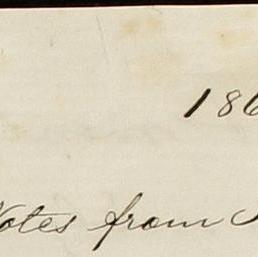 186
Notes from